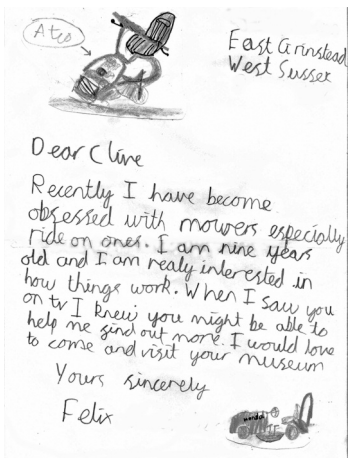 Atco
East Grinstead
West Sussex
Dear Clive
Recently I have become
obsessed with mowers especially
ride on ones. I am nine years
old and I am realy interested in
how things work. When I saw you
on tv I knew you might be able to
help me find out more. I would love
to come and visit your museum
Yours sincerely
Felix